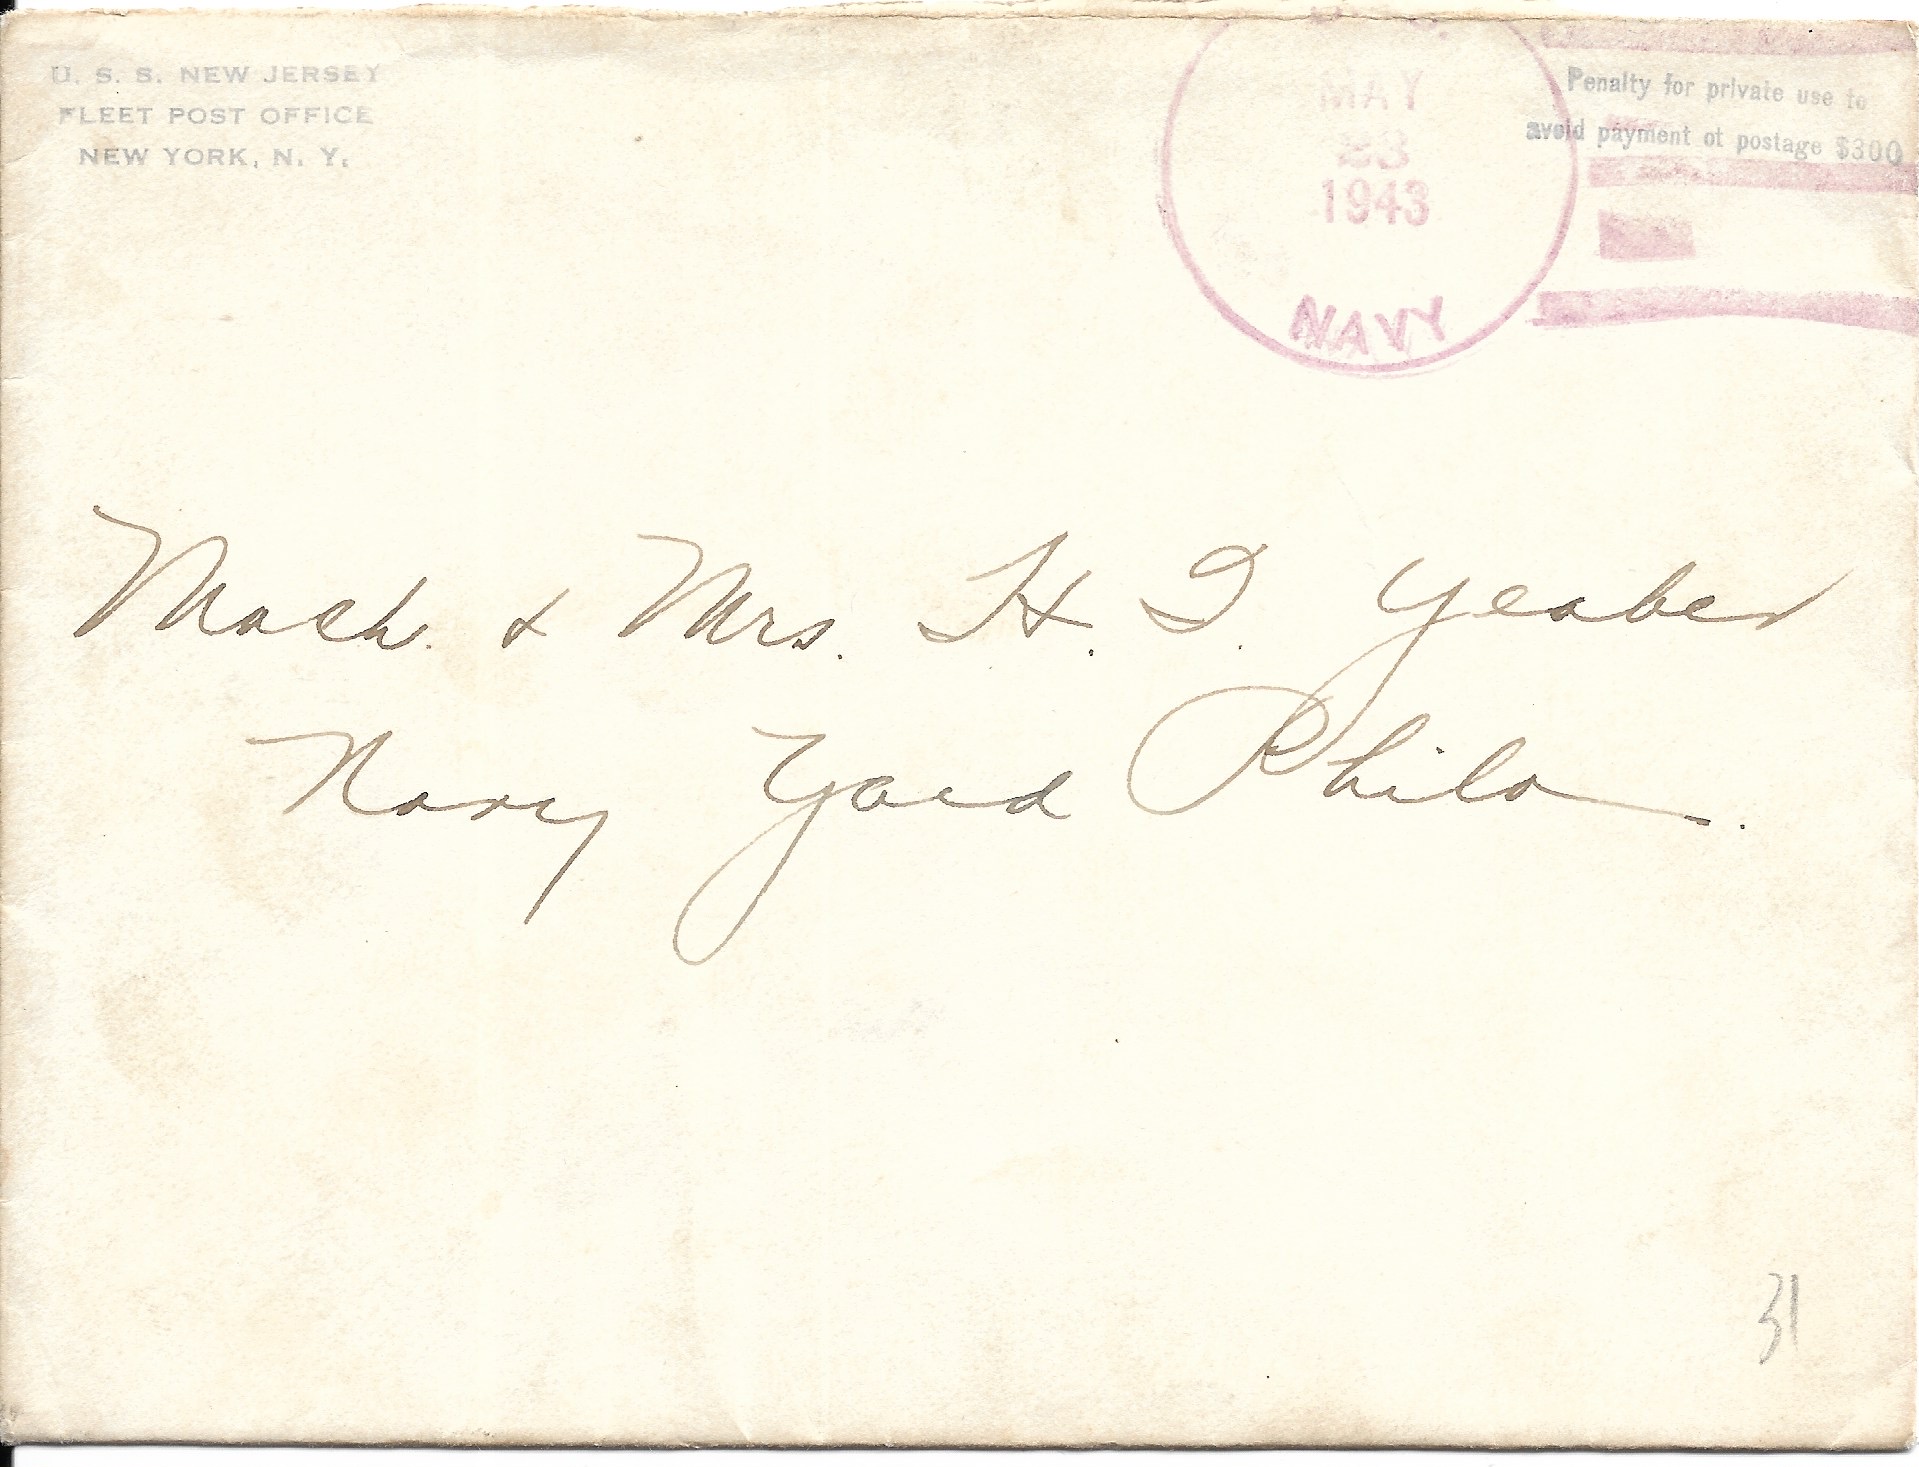 U. S. S. NEW JERSEY
FLEET POST OFFICE
NEW YORK, N. Y.
MAY
23
1943
NAVY
Penalty for private use to
avoid payment of postage $300
Mach. & Mrs. H. I. Yeaber
Navy Yard Phila.
31